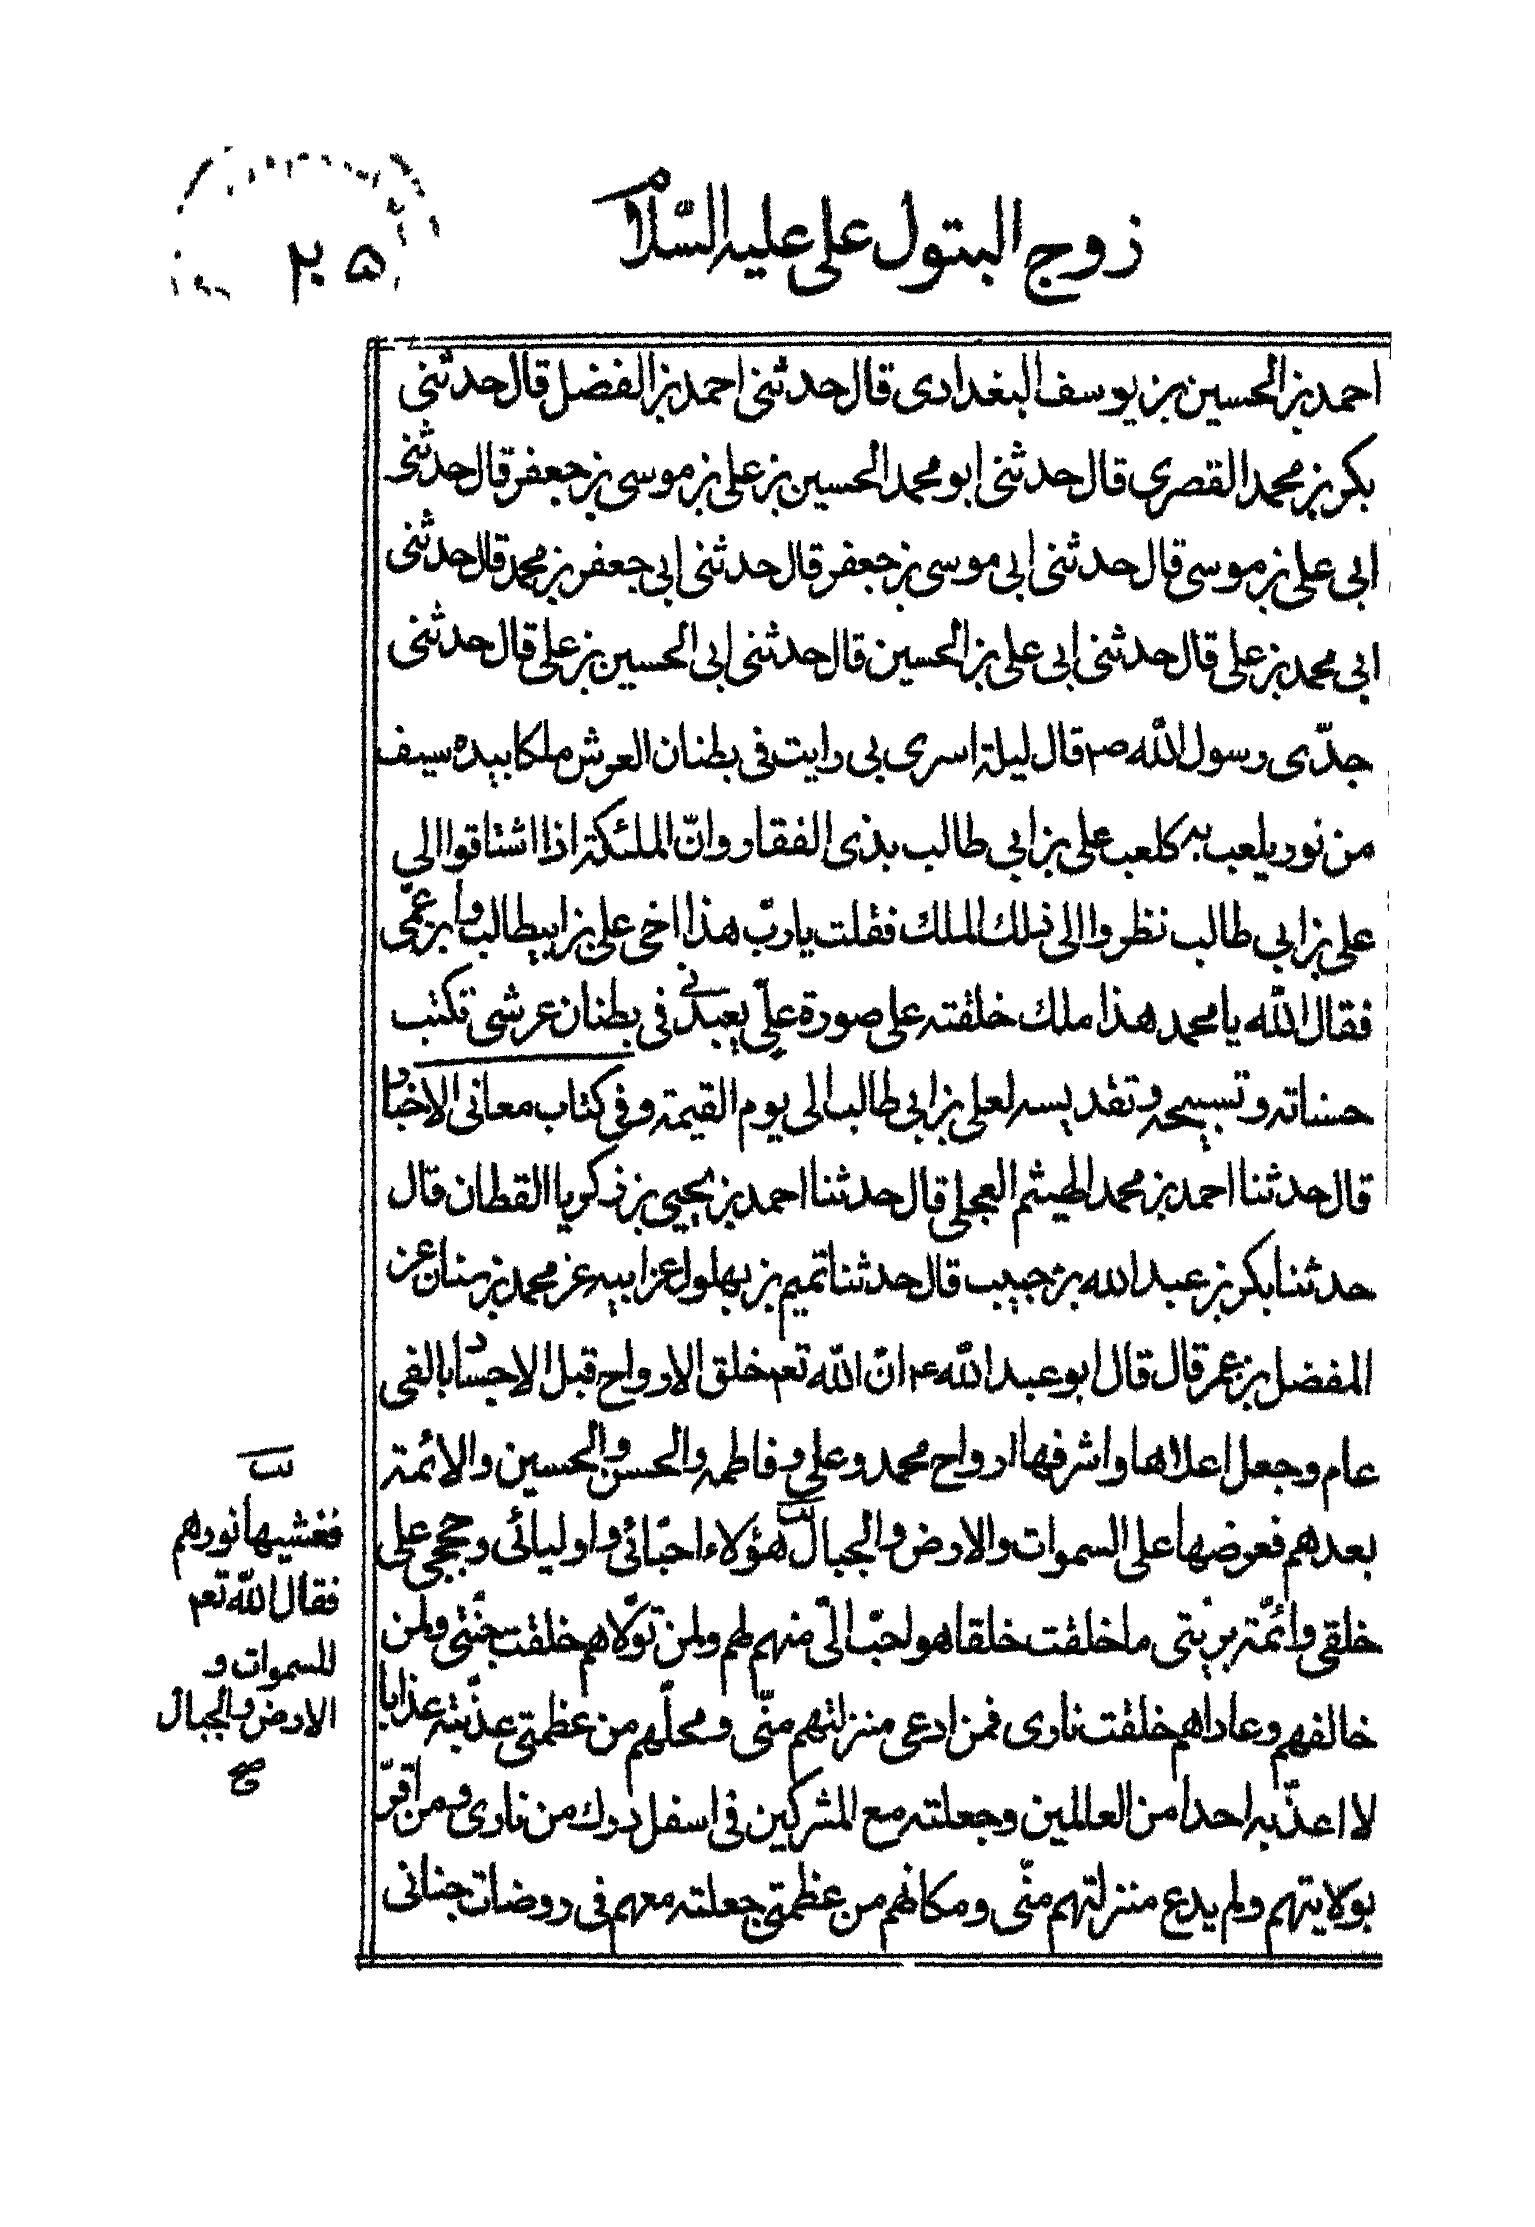 زوج البتول علی علیه السّلام
۲۵
احمد بن الحسین بن یوسف البغدادی قال حدثنی احمد بن الفضل قال حدثنی
بکر بن محمد القصری قال حدثنی ابو محمد الحسین بن علی بن موسی بن جعفر قال حدثنی
ابی علی بن موسی قال حدثنی ابی موسی بن جعفر قال حدثنی ابی جعفر بن محمد قال حدثنی
ابی محمد بن علی قال حدثنی ابی علی بن الحسین قال حدثنی ابی الحسین بن علی قال حدثنی
جدّی رسول الله صم قال لیلة اسری بی رایت فی بطنان العرش ملکا بیده سیف
من نور یلعب به کلعب علی بن ابی طالب بذی الفقار وانّ الملئکة اذا اشتاقوا الی
علی بن ابی طالب نظروا الی ذلك الملك فقلت یاربّ هذا اخی علی بن ابیطالب وابن عمّی
فقال الله یا محمد هذا ملك خلقته علی صورة علیّ یعبدنی فی بطنان عرشی تکتب
حسناته وتسبیحه وتقدیسه لعلی بن ابی طالب الی یوم القیمة وفی کتاب معانی الاخبار
قال حدثنا احمد بن محمد الهیثم العجلی قال حدثنا احمد بن یحیی بن زکریا القطان قال
حدثنا بکر بن عبد الله بن حبیب قال حدثنا تمیم بن بهلول عن ابیه عن محمد بن سنان عن
المفضل بن عمر قال قال ابو عبد الله ع انّ الله تعم خلق الارواح قبل الاجساد بالفی
عام وجعل اعلاها واشرفها ارواح محمد وعلی وفاطمه والحسن والحسین والائمة
بعدهم فعرضها علی السموات والارض والجبال هؤلاء احبّائی واولیائی وحججی علی
خلقی وائمّة بریّتی ما خلقت خلقا هو احبّ الیّ منهم لهم ولمن تولّاهم خلقت جنّتی ولمن
خالفهم وعاداهم خلقت ناری فمن ادعی منزلتهم منّی ومحلّهم من عظمتی عذّبته عذابا
لا اعذّبه احدا من العالمین وجعلته مع المشرکین فی اسفل درك من ناری ومن اقرّ
بولایتهم ولم یدع منزلتهم منّی ومکانهم من عظمتی جعلته معهم فی روضات جنانی
فغشیها نورهم
فقال الله تعم
للسموات و
الارض والجبال
صح